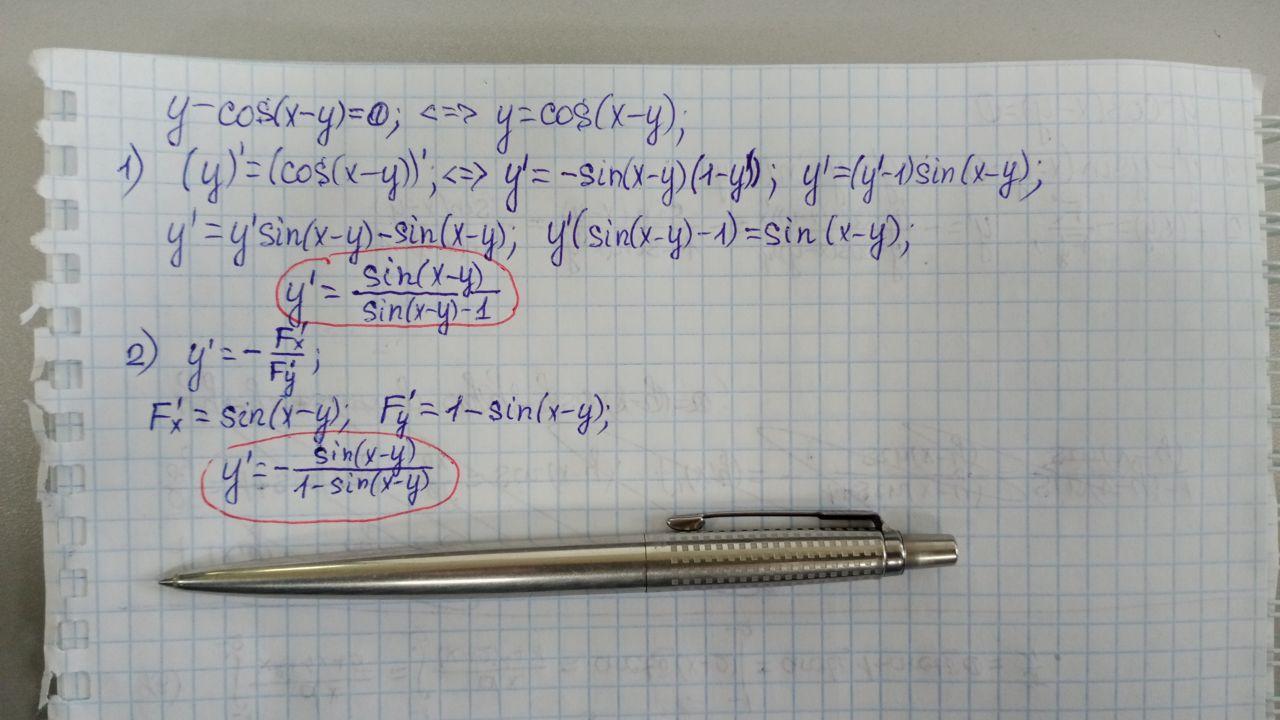 y-cos(x-y)=0; <=> y=cos(x-y);
1) (y)'=(cos(x-y))'; <=> y'=-sin(x-y)(1-y'); y'=(y'-1)sin(x-y);
y'=y'sin(x-y)-sin(x-y); y'(sin(x-y)-1)=sin(x-y);
y'=\frac{sin(x-y)}{sin(x-y)-1}
2) y'=-\frac{F_x'}{F_y'};
F_x'=sin(x-y); F_y'=1-sin(x-y);
y'=-\frac{sin(x-y)}{1-sin(x-y)}